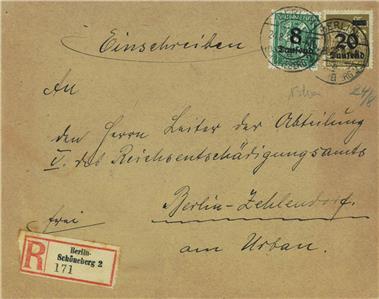 Einschreiben
8
Tausend
20
Tausend
BERLIN
An
24/8
den Herrn Leiter der Abteilung
V. des Reichsentschädigungsamts
Berlin-Zehlendorf.
frei
am Urban.
R
Berlin-
Schöneberg 2
171